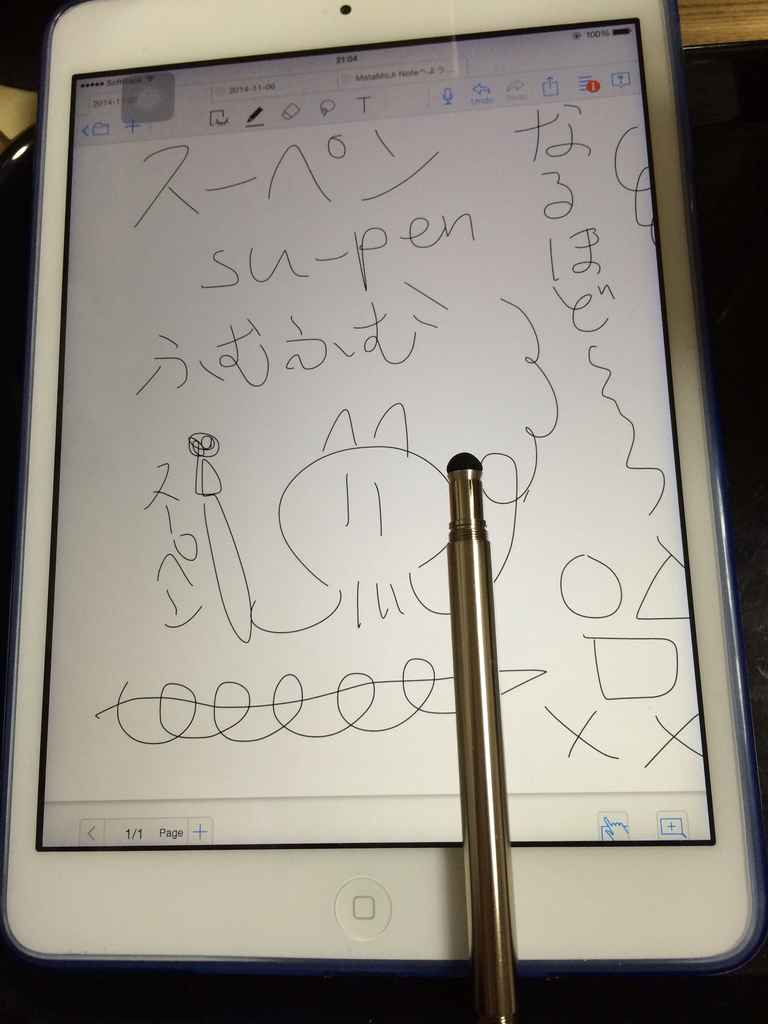 SoftBank
21:04
100%
2014-11-07
2014-11-06
MetaMoJi Noteへよう...
T
Undo
Redo
スーペン
su-pen
ふむふむ
なるほど〜
スーペン
1/1 Page